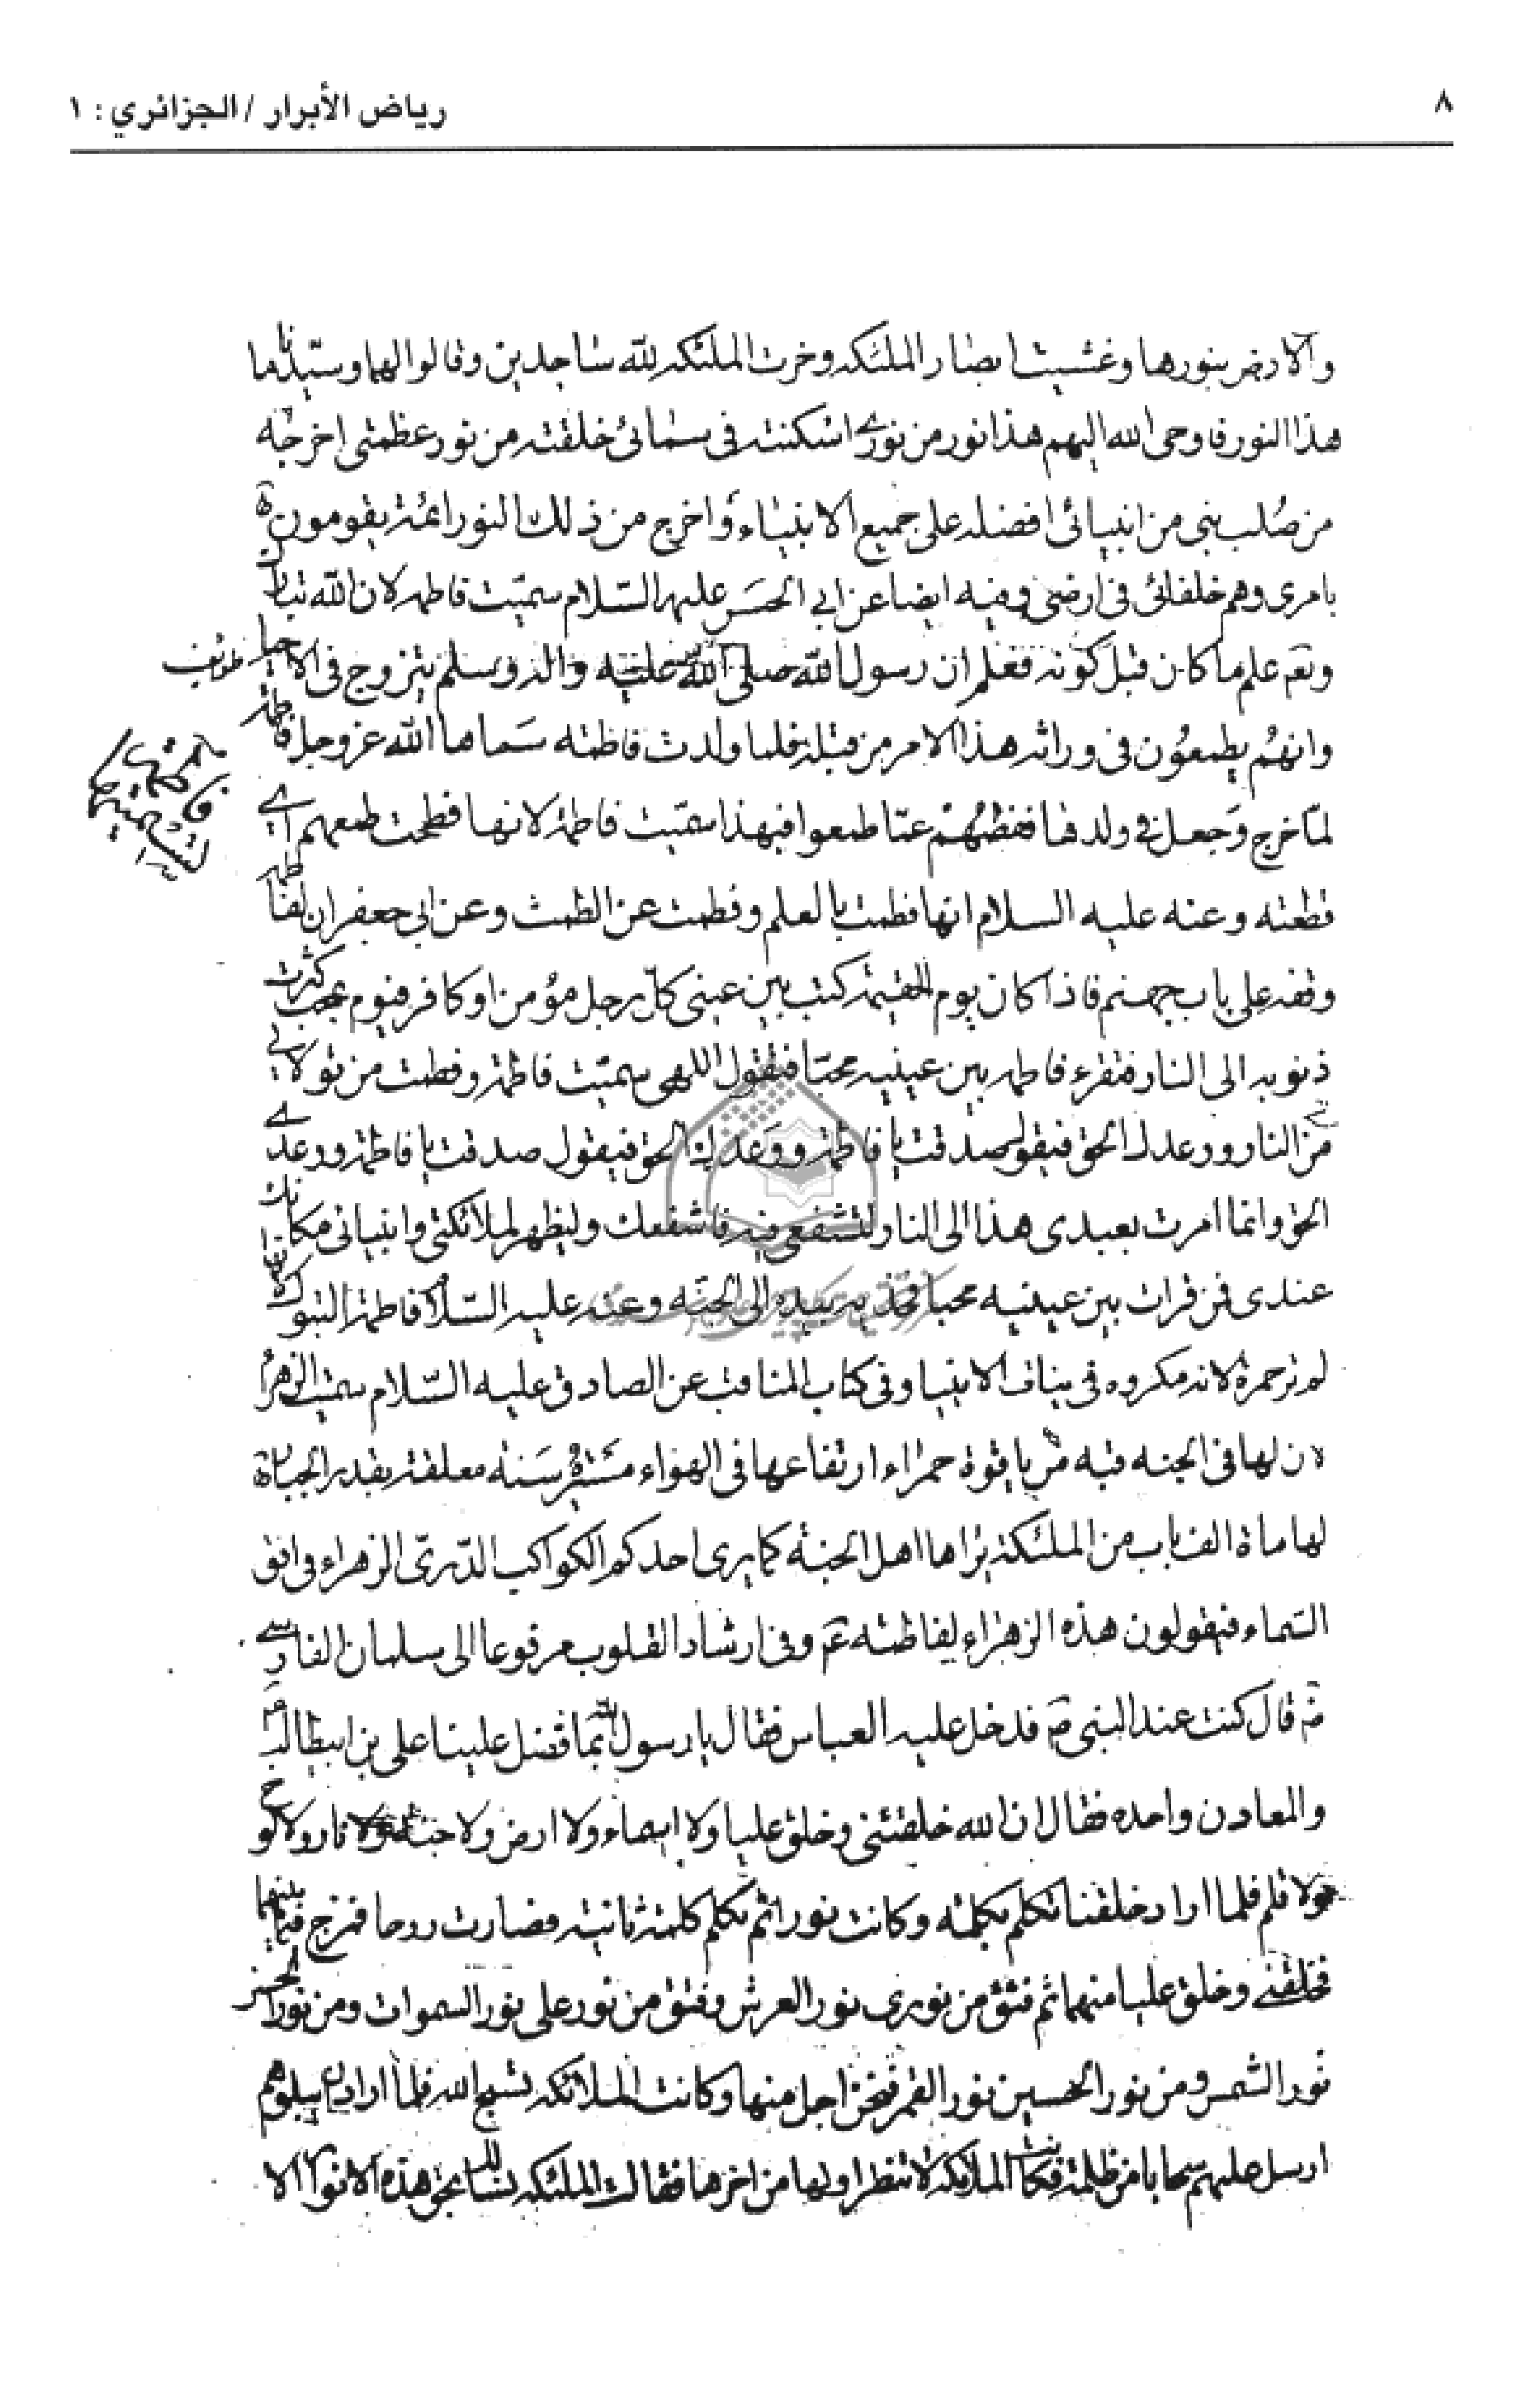 ٨
رياض الأبرار / الجزائري : ١
والارض بنورها وغشيت ابصار الملئكه وخرت الملئكه لله ساجدين وقالوا الهنا وسيدنا ما
هذا النور فاوحى الله اليهم هذا نور من نوري اسكنته في سمائي خلقته من نور عظمتي اخرجه
من صلب نبي من انبيائي افضله على جميع الانبياء واخرج من ذلك النور ائمة يقومون
بامري وهم خلفائي في ارضي وفيه ايضا عن ابي الحسن عليه السلام سميت فاطمه لان الله تبارك
وتعم علم ما كان قبل كونه فعلم ان رسول الله صلى الله عليه واله وسلم يتزوج في الاحياء
وانهم يطمعون في وراثه هذا الامر من قبله فلما ولدت فاطمه سماها الله عز وجل فاطمة
لما خرج وجعل في ولدها ففطمهم عما طمعوا فبهذا سميت فاطمة لانها فطمت طمعهم اي
قطعته وعنه عليه السلام انها فطمت بالعلم وفطمت عن الطمث وعن ابي جعفر ان لفاطمه
وقفه على باب جهنم فاذا كان يوم القيمة كتب بين عيني كل رجل مؤمن او كافر فيوم بمحب كثرت
ذنوبه الى النار فتقرء فاطمه بين عينيه محبا فيقول الهي سميت فاطمة وفطمت من تولاني
من النار ووعدك الحق فيقول صدقت يا فاطمة ووعدك الحق فيقول صدقت يا فاطمة ووعدي
الحق وانما امرت بعبدي هذا الى النار لتشفعي فيه فاشفعك وليظهر لملائكتي وانبيائي مكانك
عندي فمن قرات بين عينيه محبا فخذي بيده الى الجنه وعنه عليه السلام فاطمة البتول
لم تر حمرة لانه مكروه في بنات الانبيا وفي كتاب المناقب عن الصادق عليه السلام سميت الزهرا
لان لها في الجنه قبه من ياقوة حمراء ارتفاعها في الهواء مسيرة سنه معلقة بقدرة الجبار
لها مأة الف باب من الملئكة يراها اهل الجنة كما يرى احدكم الكواكب الدري الزهراء في افق
السماء فيقولون هذه الزهراء لفاطمه ع وفي ارشاد القلوب مرفوعا الى سلمان الفارسي
قال كنت عند النبي ص فدخل عليه العباس فقال يا رسول الله بما فضل علينا علي بن ابيطالب
والمعادن واحده فقال ان الله خلقني وخلق عليا ولا سماء ولا ارض ولا جنة ولا نار ولا لوح
ولا قلم فلما اراد خلقنا تكلم بكلمه وكانت نورا ثم تكلم كلمة ثانيه فصارت روحا فمزج فيما بينهما
فخلقني وخلق عليا منهما ثم فتق من نوري نور العرش وفتق من نور علي نور السموات ومن نور الحسن
نور الشمس ومن نور الحسين نور القمر فنحن اجل منها وكانت الملائكه تسبح الله فلما اراد ان يبلوهم
ارسل عليهم سحابا من ظلمة فكانت الملائكة لا تنظر اولها من اخرها فقالت الملئكه نسالك بحق هذه الانوار الا